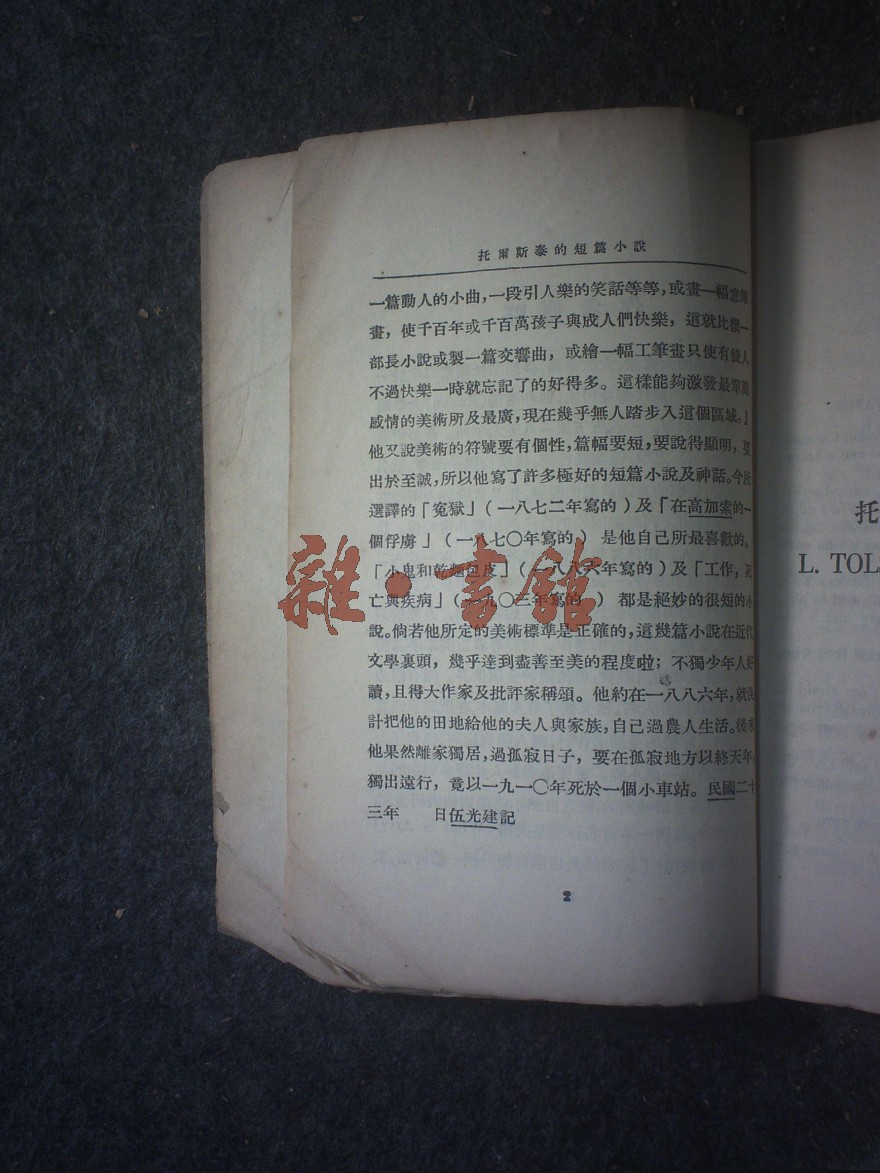 托爾斯泰的短篇小說
一篇動人的小曲，一段引人樂的笑話等等，或畫一幅意筆
畫，使千百年或千百萬孩子與成人們快樂，這就比撰一
部長小說或製一篇交響曲，或繪一幅工筆畫只使有錢人
不過快樂一時就忘記了的好得多。這樣能夠激發最單簡
感情的美術所及最廣，現在幾乎無人踏步入這個區域。」
他又說美術的符號要有個性，篇幅要短，要說得顯明，要
出於至誠，所以他寫了許多極好的短篇小說及神話。今所
選譯的「冤獄」（一八七二年寫的）及「在高加索的一
個俘虜」（一八七〇年寫的）是他自己所最喜歡的。
「小鬼和乾麵包皮」（一八八六年寫的）及「工作，死
亡與疾病」（一九〇三年寫的）都是絕妙的很短的小
說。倘若他所定的美術標準是正確的，這幾篇小說在近代
文學裏頭，幾乎達到盡善至美的程度啦；不獨少年人好
讀，且得大作家及批評家稱頌。他約在一八八六年，就決
計把他的田地給他的夫人與家族，自己過農人生活。後來
他果然離家獨居，過孤寂日子，要在孤寂地方以終天年，
獨出遠行，竟以一九一〇年死於一個小車站。民國二十
三年　　日伍光建記
2
托
L. TOL
雜·書館